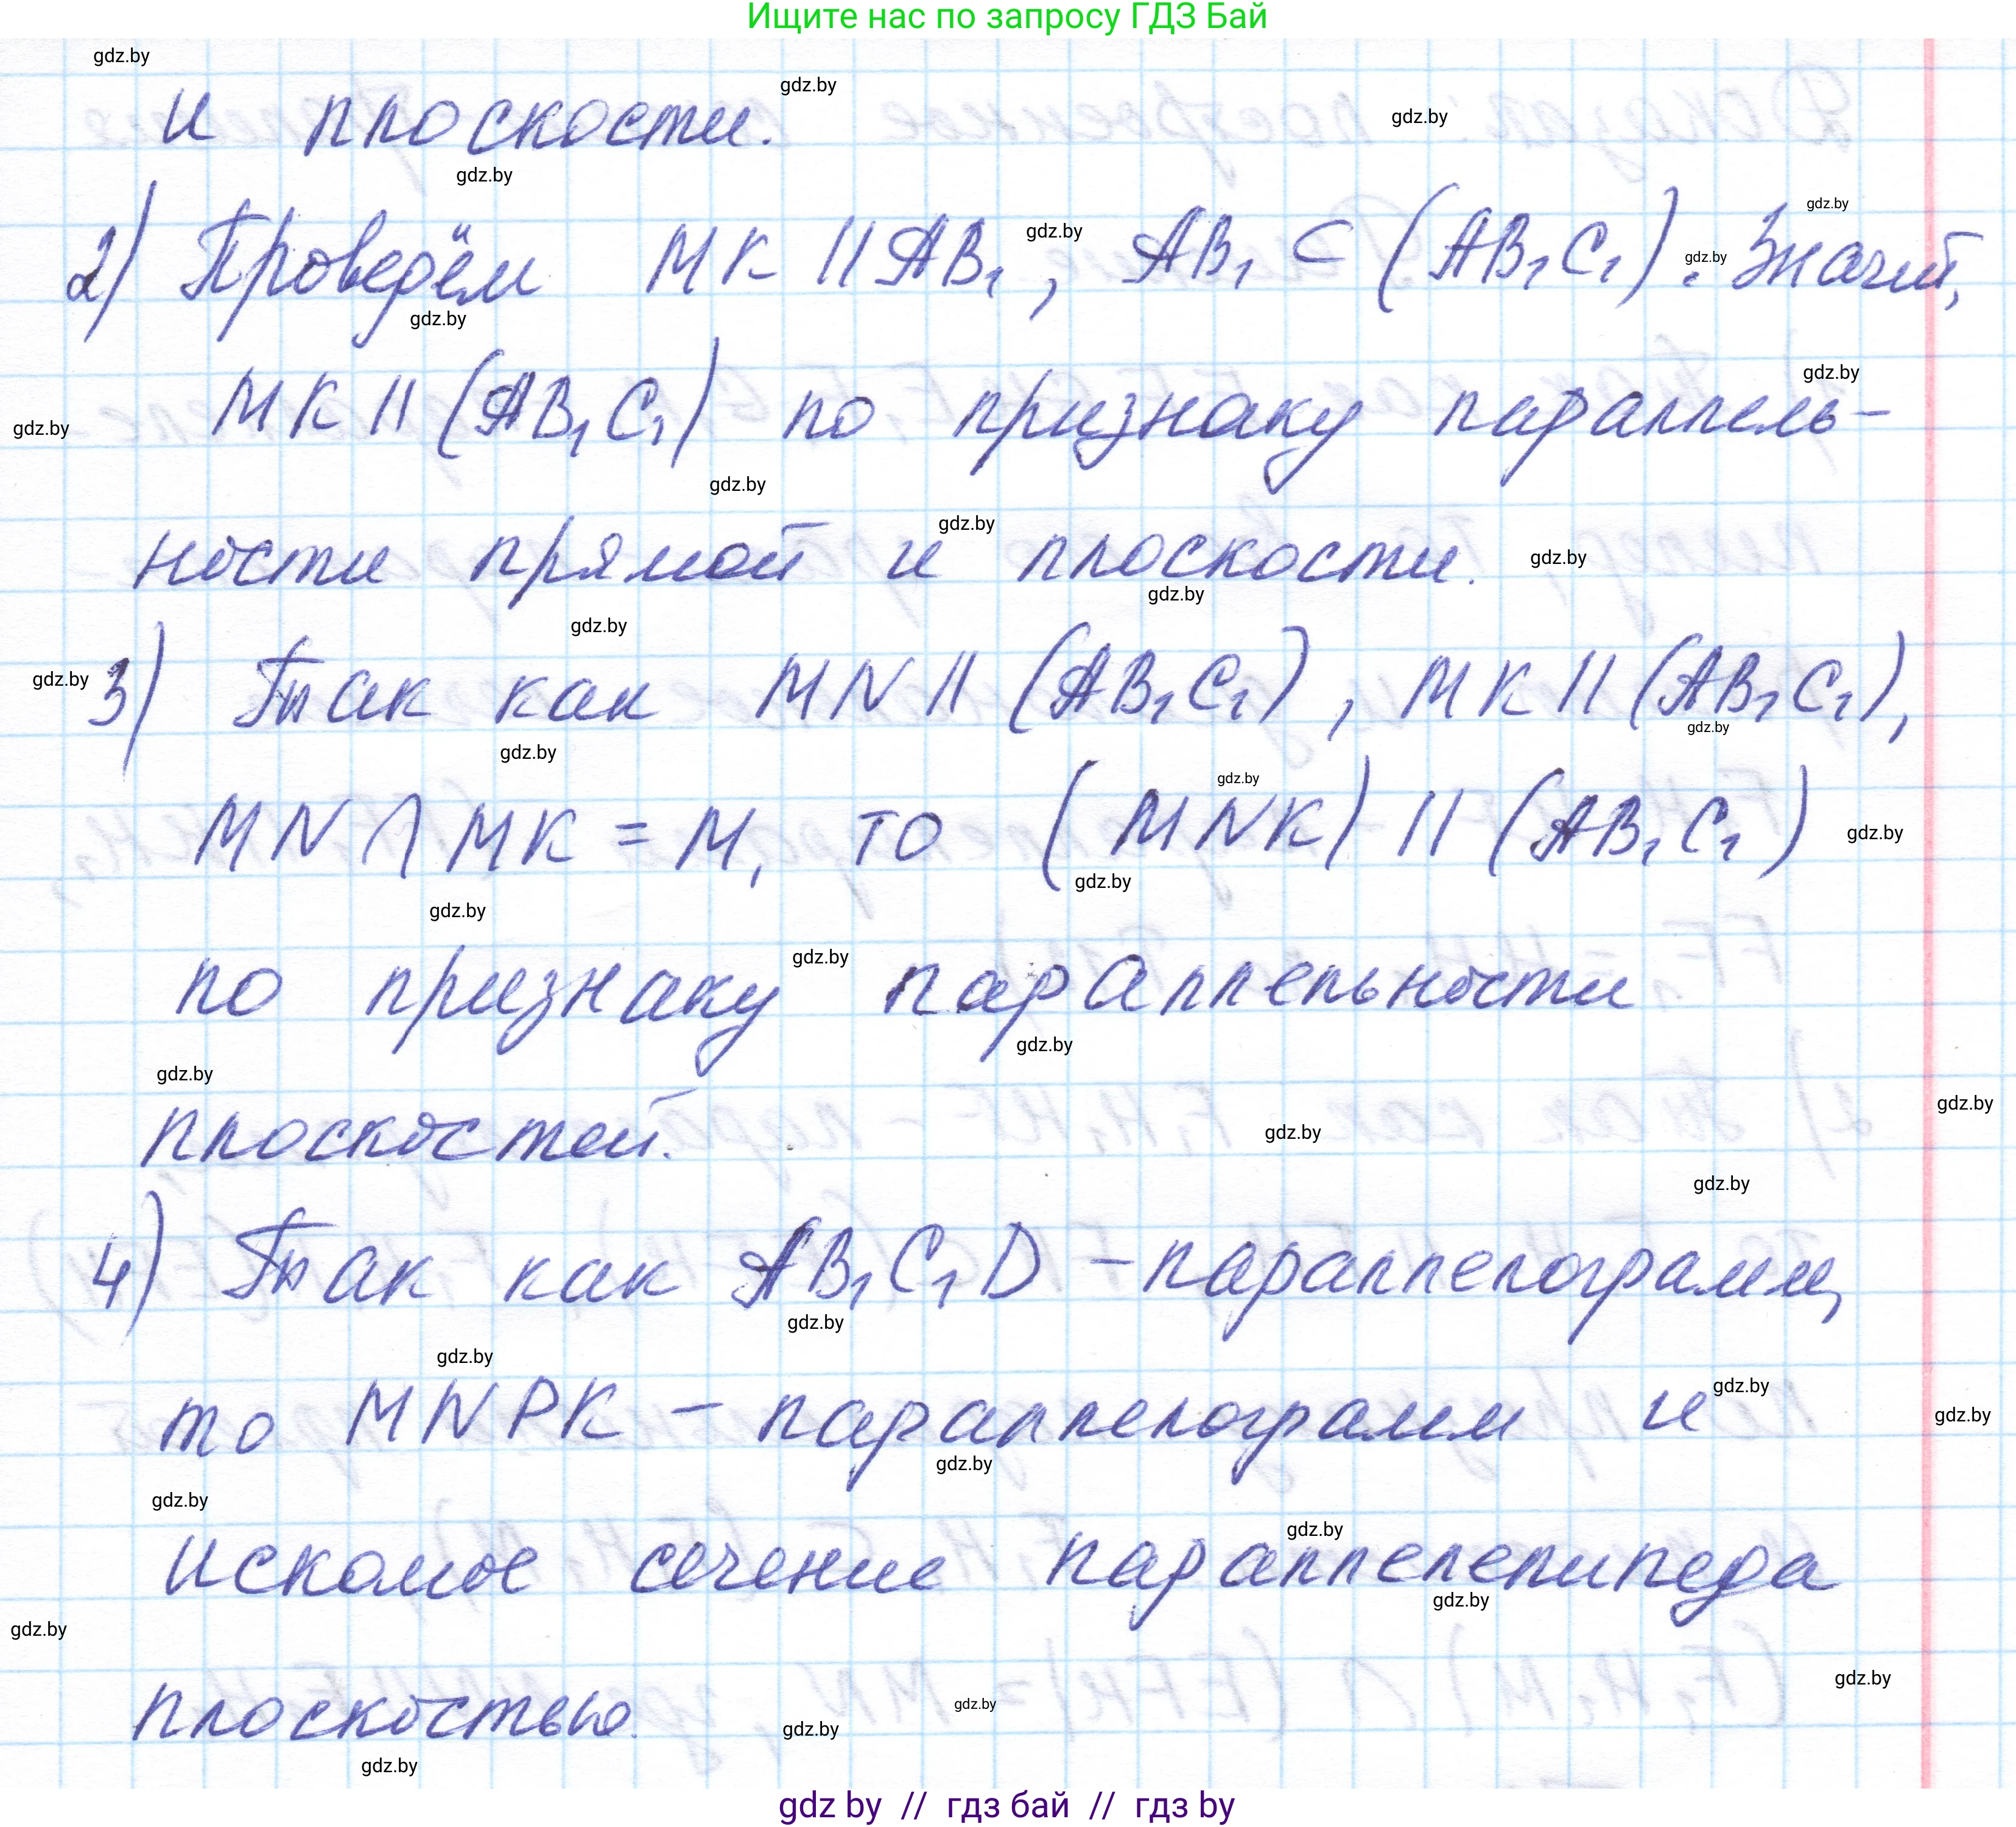 Ищите нас по запросу ГДЗ Бай
и плоскости.
2) Проведём MK || AB₁, AB₁ ⊂ (AB₁C₁). Значит,
MK || (AB₁C₁) по признаку параллель-
ности прямой и плоскости.
3) Так как MN || (AB₁C₁), MK || (AB₁C₁),
MN ∩ MK = M, то (MNK) || (AB₁C₁)
по признаку параллельности
плоскостей.
4) Так как AB₁C₁D – параллелограмм,
то MNPK – параллелограмм и
искомое сечение параллелепипеда
плоскостью.
gdz by // гдз бай // гдз by